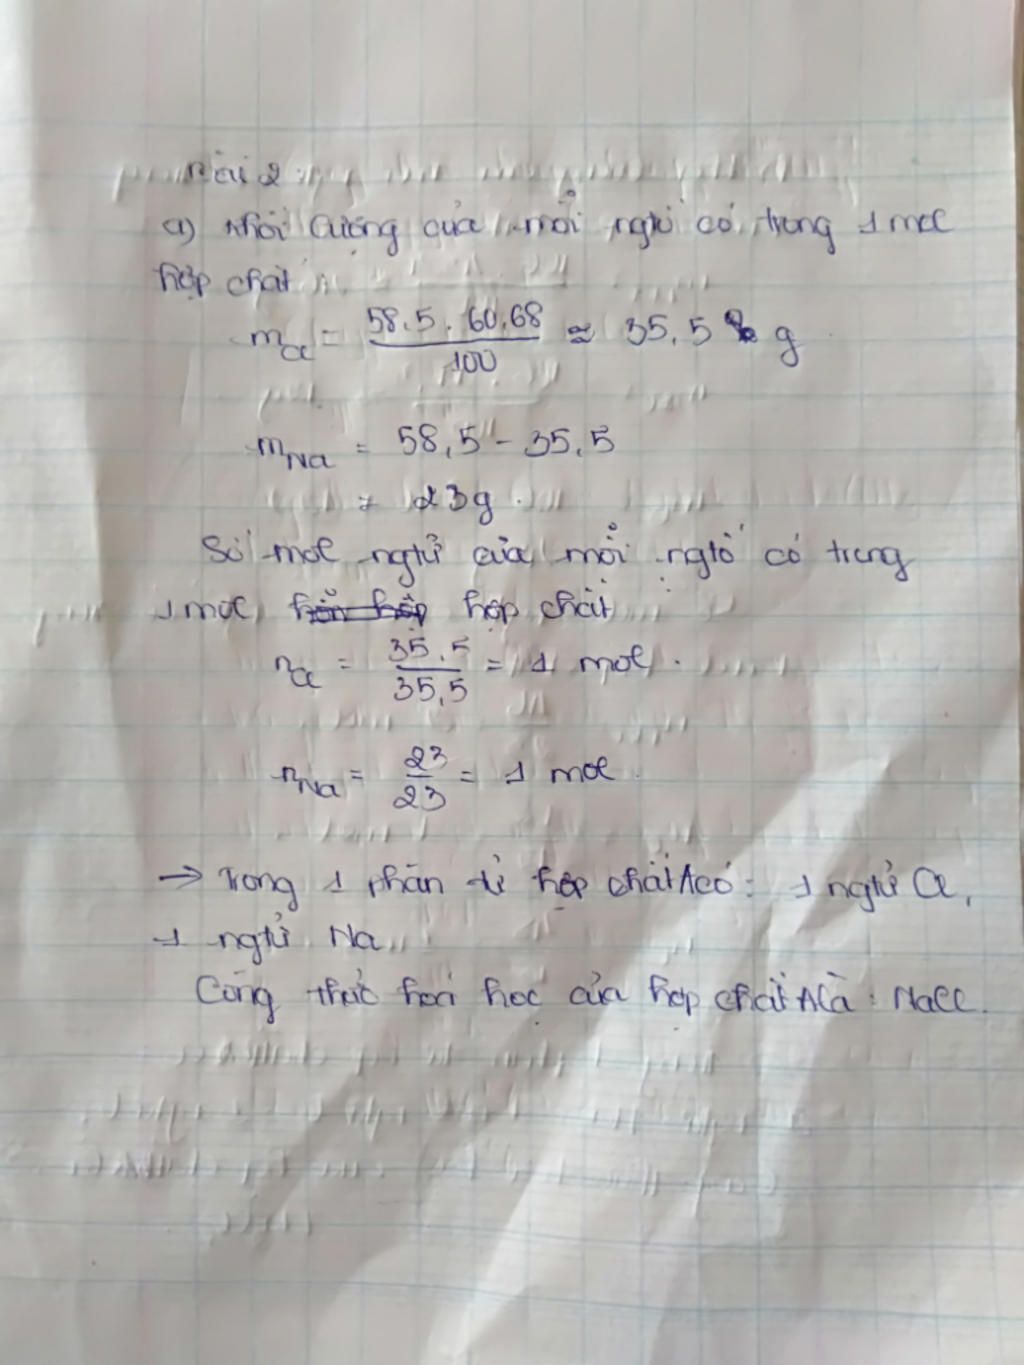 Bài 2:
a) Khối lượng của mỗi ngtử có trong 1 mol
hợp chất
mCl = 58,5 . 60,68 / 100 ≈ 35,5 g
mNa = 58,5 - 35,5
= 23g.
Số mol ngtử của mỗi ngtố có trong
1 mol hợp chất
nCl = 35,5 / 35,5 = 1 mol.
nNa = 23 / 23 = 1 mol.
→ Trong 1 phân tử hợp chất A có: 1 ngtử Cl,
1 ngtử Na
Công thức hoá học của hợp chất A là: NaCl.